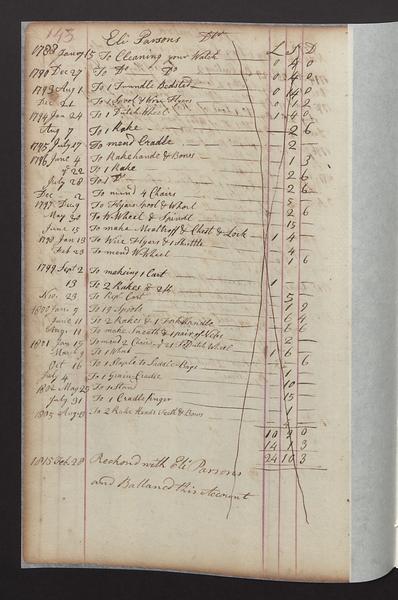 143
Eli Parsons Dr
L S D
1788 Jany 15 To Cleaning your Watch 0 4 0
1790 Dec 27 To Do Do 0 4 0
1793 Aug 1 To 1 Trundle Bedsted 0 14 0
Dec 21 To 1 Spool & Wire Flyers 0 1 2
1794 Jan 24 To 1 Dutch Wheel 1 4 0
Aug 7 To 1 Rake 2 6
1795 July 17 To mend Cradle 2
1796 June 4 To Rakehande & Bows 1 3
22 To 1 Rake 2 6
July 28 To 1 Do 2 6
Dec 2 To mind 4 Chairs 5
1797 Dec 9 To Flyers Spool & Whorl 2 6
May 20 To W Wheel & Spindl 15
June 15 To make & Chest & Lock 1 4
1798 Jan 13 To Wire Flyers & 1 Shittle 4
Feb 23 To mend W Wheel 1 6
1799 Sept 2 To making 1 Cart 1
13 To 2 Rakes
Nov. 23 To Repr Cart 5
1800 Jan 9 To 19 Spools 9
June 11 To 2 Rakes & 1 Fork Handle 6
Aug. 11 To make Sneath & 1 pair of Nebs 6 6
1801 Jan 15 To mend 2 Chairs Dutch Wheel 2
March 9 To 1 Wheel 1 6
Oct 16 To 1 Staple to Saddle Bags 6
July 4 To 1 Grain Cradle 1
1802 May 25 To 1 Stove 10
July 31 To 1 Cradle finger 15
1805 Aug To 2 Rake Heads Teeth & Bows 1
10 2 0
14 1 3
24 10 3
1815 Feb. 28 Rechond with Eli Parsons
and Ballanced this Account